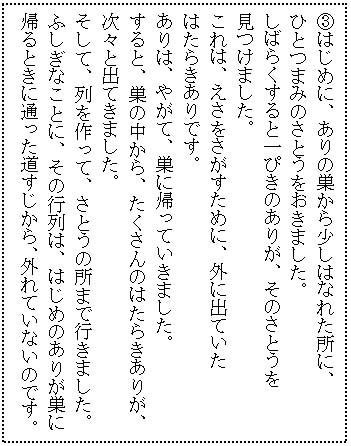 ③はじめに、ありの巣から少しはなれた所に、
ひとつまみのさとうをおきました。
しばらくすると一ぴきのありが、そのさとうを
見つけました。
これは、えさをさがすために、外に出ていた
はたらきありです。
ありは、やがて、巣に帰っていきました。
すると、巣の中から、たくさんのはたらきありが、
次々と出てきました。
そして、列を作って、さとうの所まで行きました。
ふしぎなことに、その行列は、はじめのありが巣に
帰るときに通った道すじから、外れていないのです。